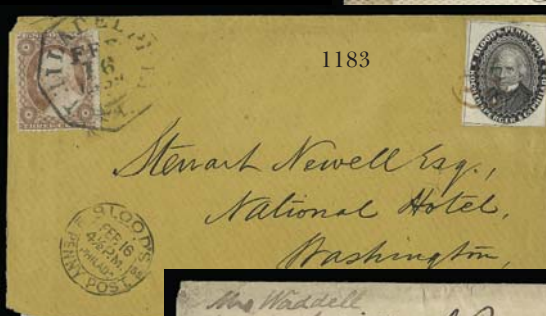 1183
PHILADELPHIA
FEB
16
Pa.
BLOOD'S PENNY POST
Stewart Newell Esq.,
National Hotel,
Washington,
BLOOD'S
FEB 16
4½ P.M.
PHILADA
PENNY POST
Mrs Waddell